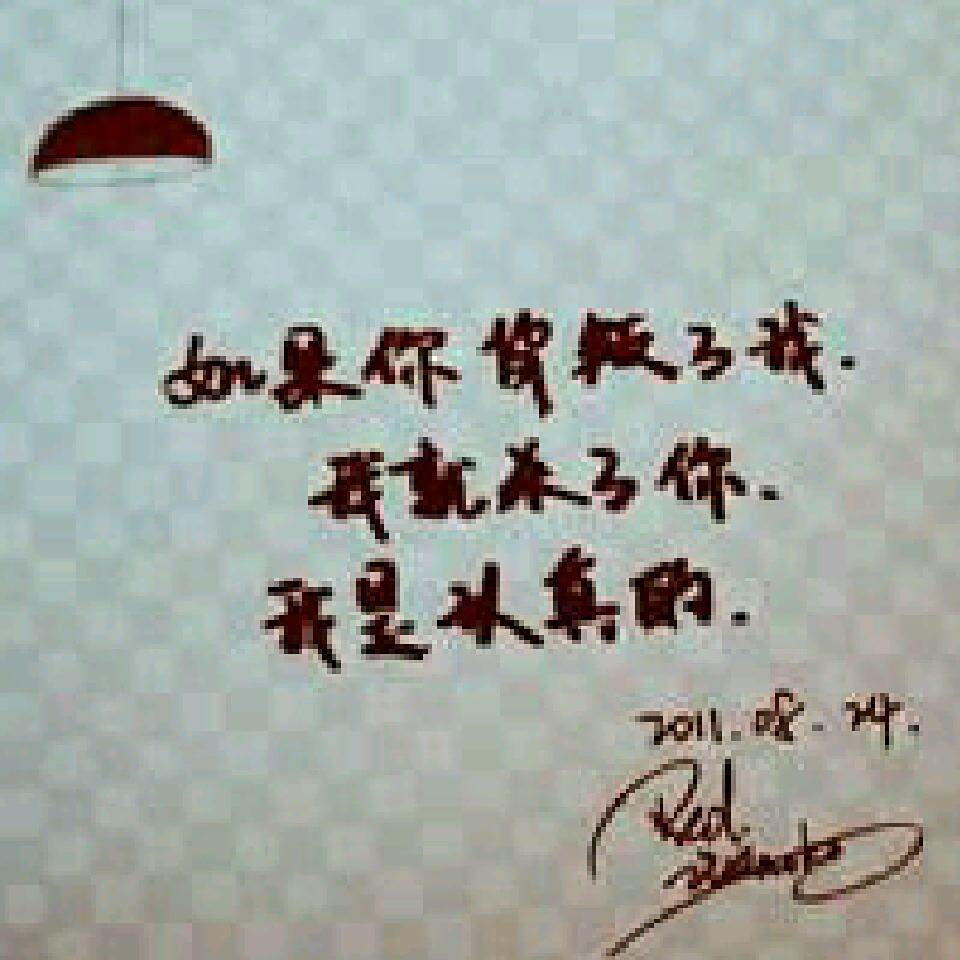 如果你背叛了我.
我就杀了你.
我是认真的.
2011.08.24.
Red